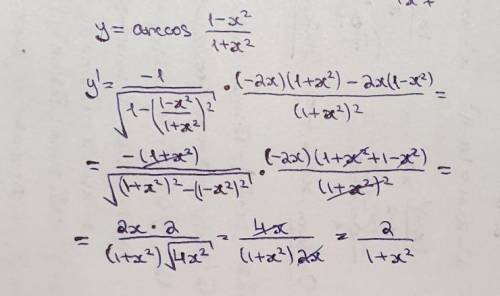 y = arccos (1-x²)/(1+x²)
y' = -1/√(1-((1-x²)/(1+x²))²) · ((-2x)(1+x²) - 2x(1-x²))/(1+x²)² =
= -(1+x²)/√((1+x²)²-(1-x²)²) · ((-2x)(1+x²+1-x²))/(1+x²)² =
= (2x·2)/((1+x²)√(4x²)) = 4x/((1+x²)2x) = 2/(1+x²)